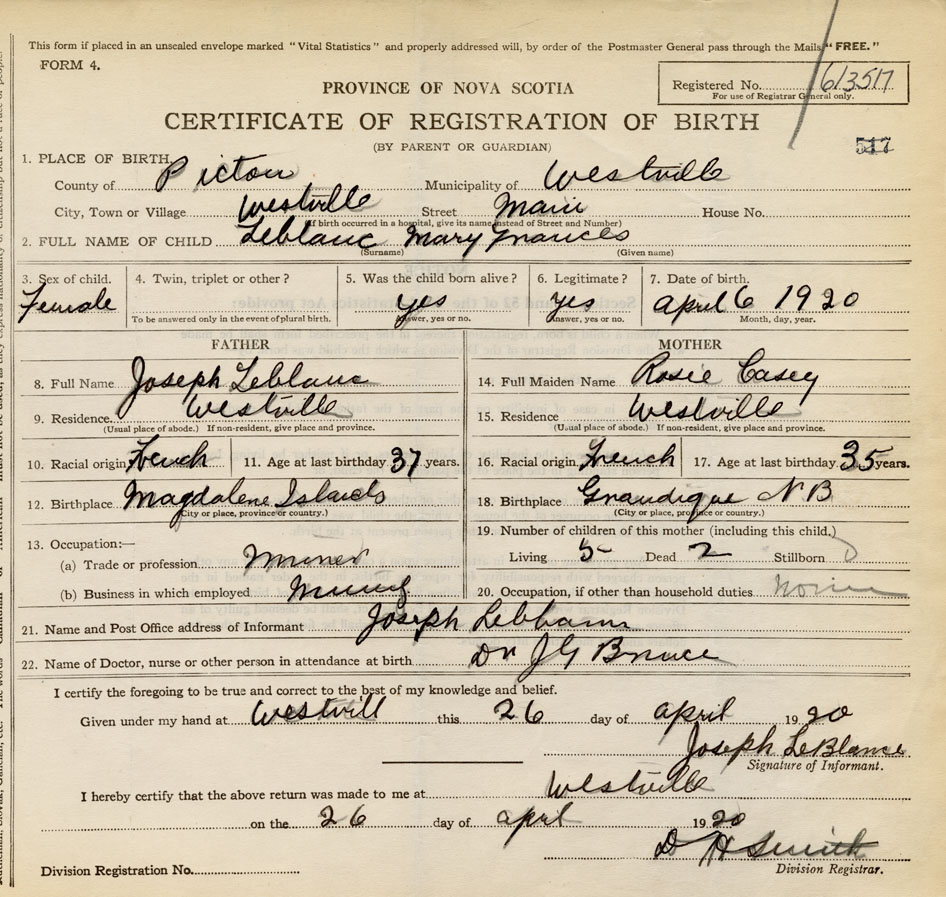 This form if placed in an unsealed envelope marked "Vital Statistics" and properly addressed will, by order of the Postmaster General pass through the Mails, "FREE."
FORM 4.
PROVINCE OF NOVA SCOTIA
Registered No. 613517
For use of Registrar General only.
CERTIFICATE OF REGISTRATION OF BIRTH
(BY PARENT OR GUARDIAN)
517
1. PLACE OF BIRTH
County of Pictou Municipality of Westville
City, Town or Village Westville Street Main House No.
(If birth occurred in a hospital, give its name instead of Street and Number)
2. FULL NAME OF CHILD Leblanc Mary Frances
(Surname) (Given name)
3. Sex of child. 4. Twin, triplet or other? 5. Was the child born alive? 6. Legitimate? 7. Date of birth.
Female yes Yes april 6 1920
To be answered only in the event of plural birth. Answer, yes or no. Answer, yes or no. Month, day, year.
FATHER MOTHER
8. Full Name Joseph Leblanc 14. Full Maiden Name Rosie Casey
9. Residence. Westville 15. Residence Westville
(Usual place of abode.) If non-resident, give place and province. (Usual place of abode.) If non-resident, give place and province.
10. Racial origin French 11. Age at last birthday 37 years. 16. Racial origin French 17. Age at last birthday 35 years.
12. Birthplace Magdalene Islands 18. Birthplace Grandique N B
(City or place, province or country.) (City or place, province or country.)
13. Occupation:— 19. Number of children of this mother (including this child.)
(a) Trade or profession Living 5 Dead 2 Stillborn
(b) Business in which employed Mining 20. Occupation, if other than household duties
21. Name and Post Office address of Informant Joseph Leblanc
22. Name of Doctor, nurse or other person in attendance at birth Dr J G Bruce
I certify the foregoing to be true and correct to the best of my knowledge and belief.
Given under my hand at Westvill this 26 day of april 1920
Joseph LeBlance
Signature of Informant.
I hereby certify that the above return was made to me at Westville
on the 26 day of april 1920
D H Smith
Division Registration No. Division Registrar.